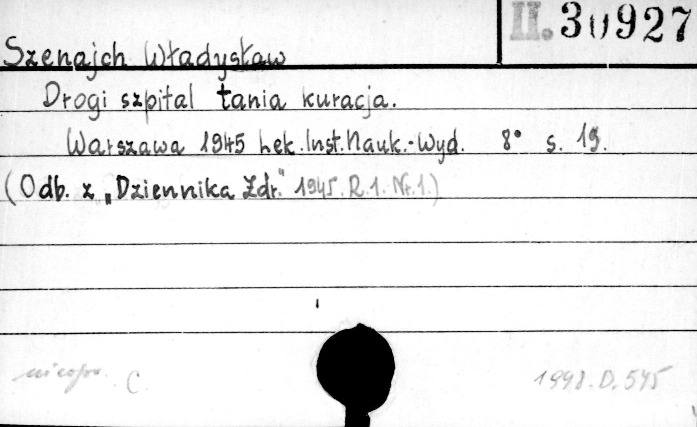 II. 30927
Szenajch Władysław
Drogi szpital tania kuracja.
Warszawa 1945 Lek. Inst. Nauk.-Wyd. 8° s. 19.
(Odb. z „Dziennika Zdr." 1945. R.1. Nr.1.)
nieopr. C. 1948.D.545